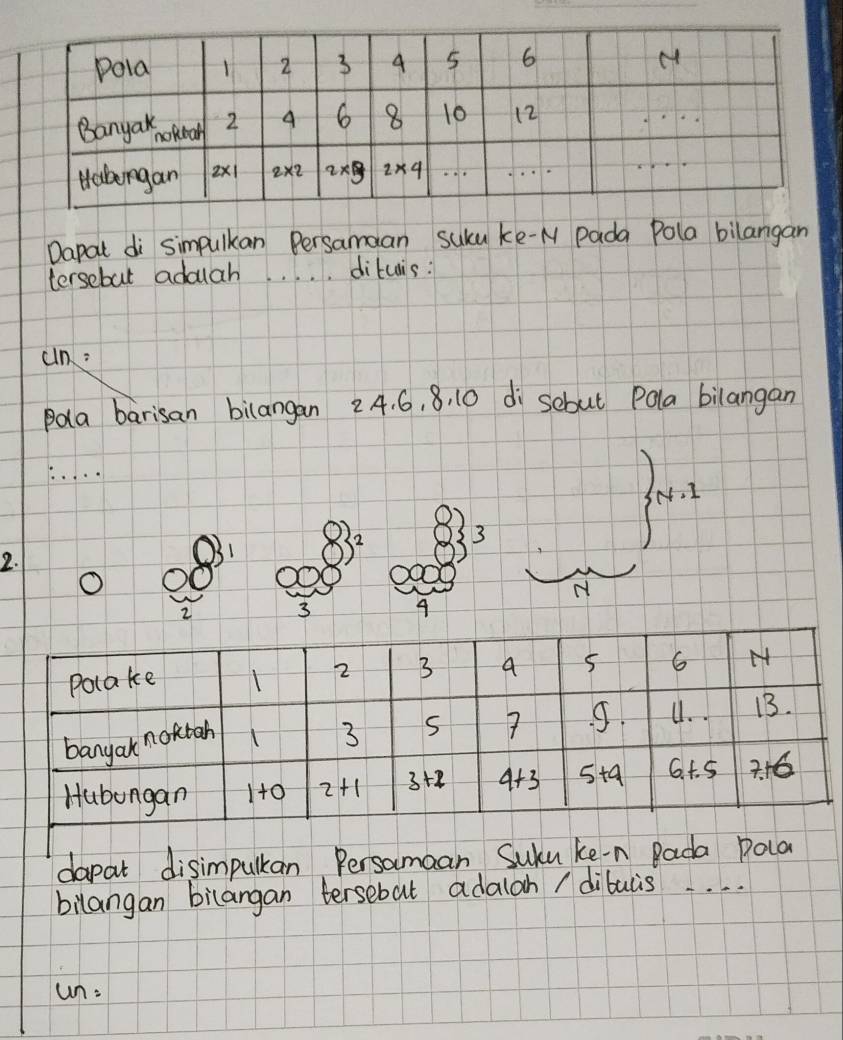 Pola 1 2 3 4 5 6 N
Banyak noktah 2 4 6 8 10 12 ....
Hubungan 2x1 2x2 2x3 2x4 ... .... ....
Dapat di simpulkan Persamaan suku ke-N pada Pola bilangan
tersebut adalah ..... ditulis:
Un =
Pola barisan bilangan 2 4.6,8,10 di sebut Pola bilangan
:....
N.1
2.
1 2 3
2 3 4 N
Pola ke 1 2 3 4 5 6 N
banyak noktah 1 3 5 7 .9. 11.. 13.
Hubungan 1+0 2+1 3+2 4+3 5+4 6+5 7+6
dapat disimpulkan Persamaan Suku ke-n pada pola
bilangan bilangan tersebut adalah / ditulis ....
Un =